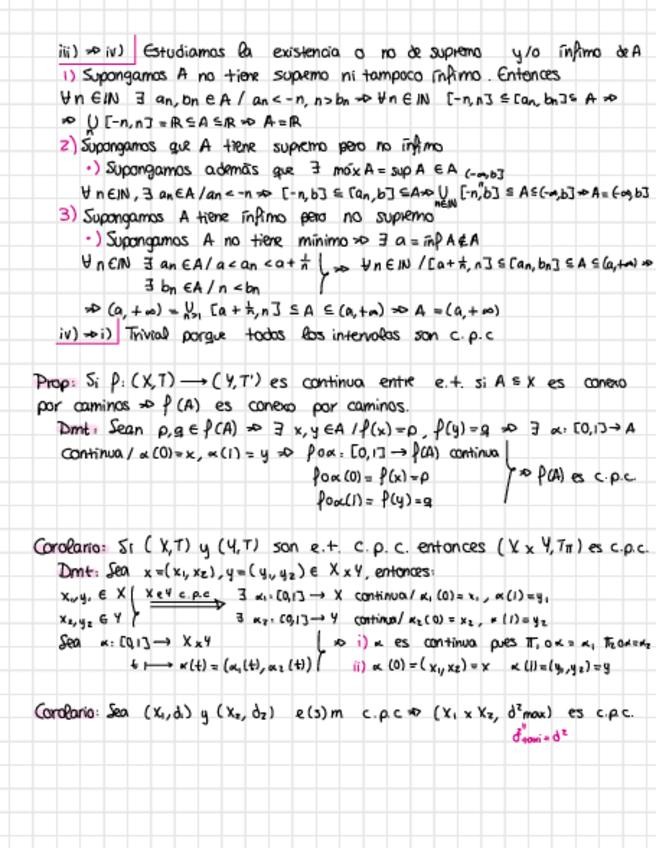 iii) ⇒ iv) Estudiamos la existencia o no de supremo y/o ínfimo de A
1) Supongamos A no tiene supremo ni tampoco ínfimo. Entonces
∀n∈ℕ ∃ an, bn ∈ A / an < -n, n > bn ⇒ ∀n∈ℕ [-n,n] ⊆ [an, bn] ⊆ A ⇒
⇒ ⋃n [-n,n] = ℝ ⊆ A ⊆ ℝ ⇒ A = ℝ
2) Supongamos que A tiene supremo pero no ínfimo
·) Supongamos además que ∃ máx A = sup A ∈ A (-∞,b]
∀n∈ℕ, ∃ an∈A / an < -n ⇒ [-n,b] ⊆ [an,b] ⊆ A ⇒ ⋃n∈ℕ [-n,b] ⊆ A ⊆ (-∞,b] ⇒ A = (-∞,b]
3) Supongamos A tiene ínfimo pero no supremo
·) Supongamos A no tiene mínimo ⇒ ∃ a = ínf A ∉ A
∀n∈ℕ ∃ an ∈ A / a < an < a + 1/n } ⇒ ∀n∈ℕ / [a + 1/n, n] ⊆ [an, bn] ⊆ A ⊆ (a, +∞) ⇒
∃ bn ∈ A / n < bn
⇒ (a, +∞) = ⋃n≥1 [a + 1/n, n] ⊆ A ⊆ (a, +∞) ⇒ A = (a, +∞)
iv) ⇒ i) Trivial porque todos los intervalos son c.p.c
Prop: Si f: (X,T) → (Y,T') es continua entre e.t. si A ⊆ X es conexo
por caminos ⇒ f(A) es conexo por caminos.
Dmt: Sean p,q ∈ f(A) ⇒ ∃ x,y ∈ A / f(x)=p, f(y)=q ⇒ ∃ α: [0,1] → A
continua / α(0)=x, α(1)=y ⇒ f∘α: [0,1] → f(A) continua
f∘α(0) = f(x) = p } ⇒ f(A) es c.p.c.
f∘α(1) = f(y) = q
Corolario: Si (X,T) y (Y,T) son e.t. c.p.c. entonces (X × Y, Tπ) es c.p.c.
Dmt: Sea x = (x₁,x₂), y = (y₁,y₂) ∈ X×Y, entonces:
x₁,y₁ ∈ X } X e Y c.p.c ⇒ ∃ α₁: [0,1] → X continua / α₁(0) = x₁, α(1) = y₁
x₂,y₂ ∈ Y ∃ α₂: [0,1] → Y continua / α₂(0) = x₂, α(1) = y₂
Sea α: [0,1] → X×Y } ⇒ i) α es continua pues π₁∘α = α₁ π₂∘α = α₂
t ↦ α(t) = (α₁(t), α₂(t)) ii) α(0) = (x₁,x₂) = x α(1) = (y₁,y₂) = y
Corolario: Sea (X₁,d₁) y (X₂, d₂) e(s)m c.p.c ⇒ (X₁ × X₂, d²max) es c.p.c.